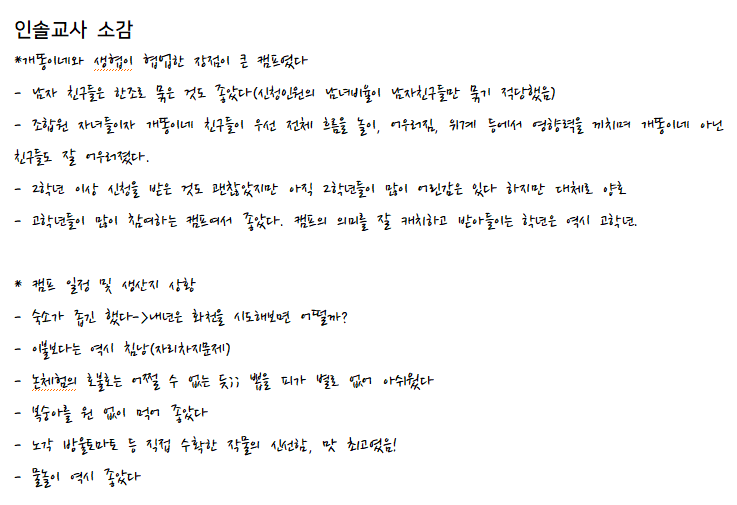 인솔교사 소감
*개똥이네와 생협이 협업한 장점이 큰 캠프였다
- 남자 친구들은 한조로 묶은 것도 좋았다(신청인원의 남녀비율이 남자친구들만 묶기 적당했음)
- 조합원 자녀들이자 개똥이네 친구들이 우선 전체 흐름을 놀이, 어우러짐, 위계 등에서 영향력을 끼치며 개똥이네 아닌
친구들도 잘 어우러졌다.
- 2학년 이상 신청을 받은 것도 괜찮았지만 아직 2학년들이 많이 어린감은 있다 하지만 대체로 양호
- 고학년들이 많이 참여하는 캠프여서 좋았다. 캠프의 의미를 잘 캐치하고 받아들이는 학년은 역시 고학년.
* 캠프 일정 및 생산지 상황
- 숙소가 좁긴 했다->내년은 화천을 시도해보면 어떨까?
- 이불보다는 역시 침낭(자리차지문제)
- 논체험의 호불호는 어쩔 수 없는 듯;; 뽑을 피가 별로 없어 아쉬웠다
- 복숭아를 원 없이 먹어 좋았다
- 노각 방울토마토 등 직접 수확한 작물의 신선함, 맛 최고였음!
- 물놀이 역시 좋았다